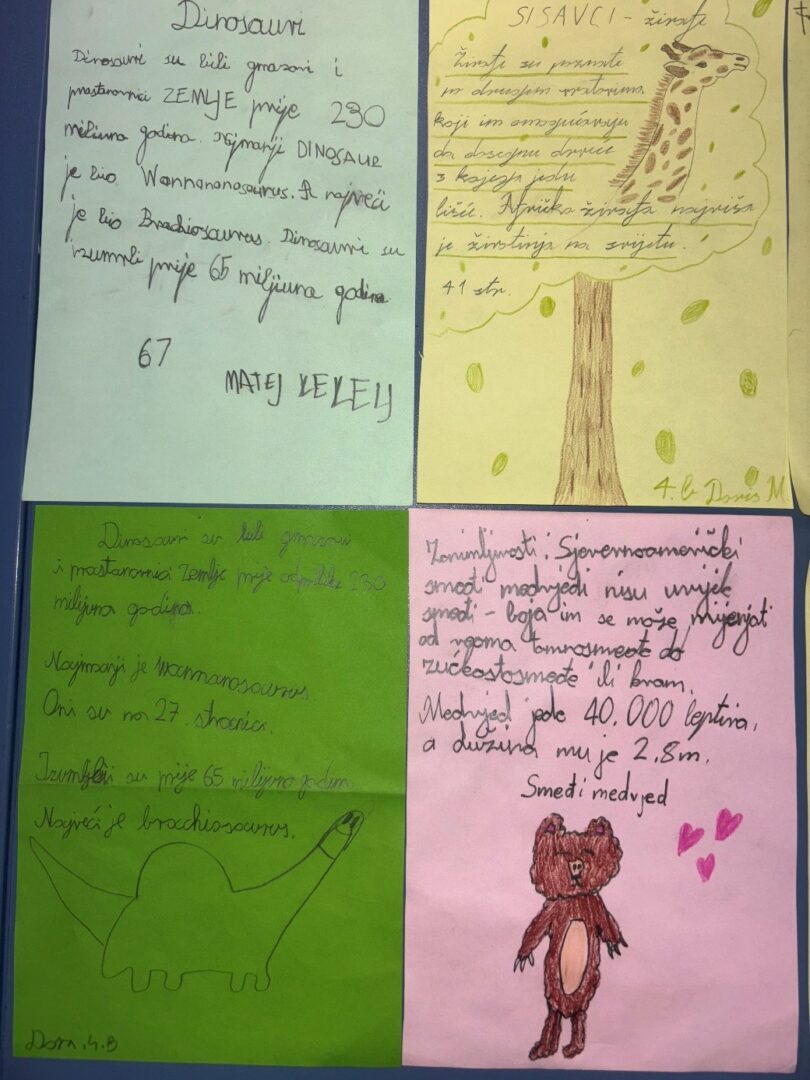 Dinosauri
Dinosauri su bili gmazovi i
prastanovnici ZEMLJE prije 230
milijuna godina. Najmanji DINOSAUR
je bio Wannanosaurus. A najveći
je bio Brachiosaurus. Dinosauri su
izumrli prije 65 milijuna godina.
67
MATEJ
SISAVCI - žirafe
Žirafe su poznate
po dugim vratovima
koji im omogućavaju
da dosegnu drveće
s kojega jedu
lišće. Afrička žirafa najviša
je životinja na svijetu.
41 str.
4. b Doris M.
Dinosauri su bili gmazovi
i prastanovnici Zemlje prije otprilike 230
milijuna godina.
Najmanji je wannanosaurus.
Oni su na 27. stranici.
su prije 65 milijuna godina.
Najveći je brachiosaurus.
Dora. 4. B
Zanimljivosti: Sjevernoamerički
smeđi medvjedi nisu uvijek
smeđi - boja im se može mijenjati
od tamnosmeđe do
žućkastosmeđe ili krem.
Medvjed jede 40.000 leptira,
a dužina mu je 2.8m.
Smeđi medvjed